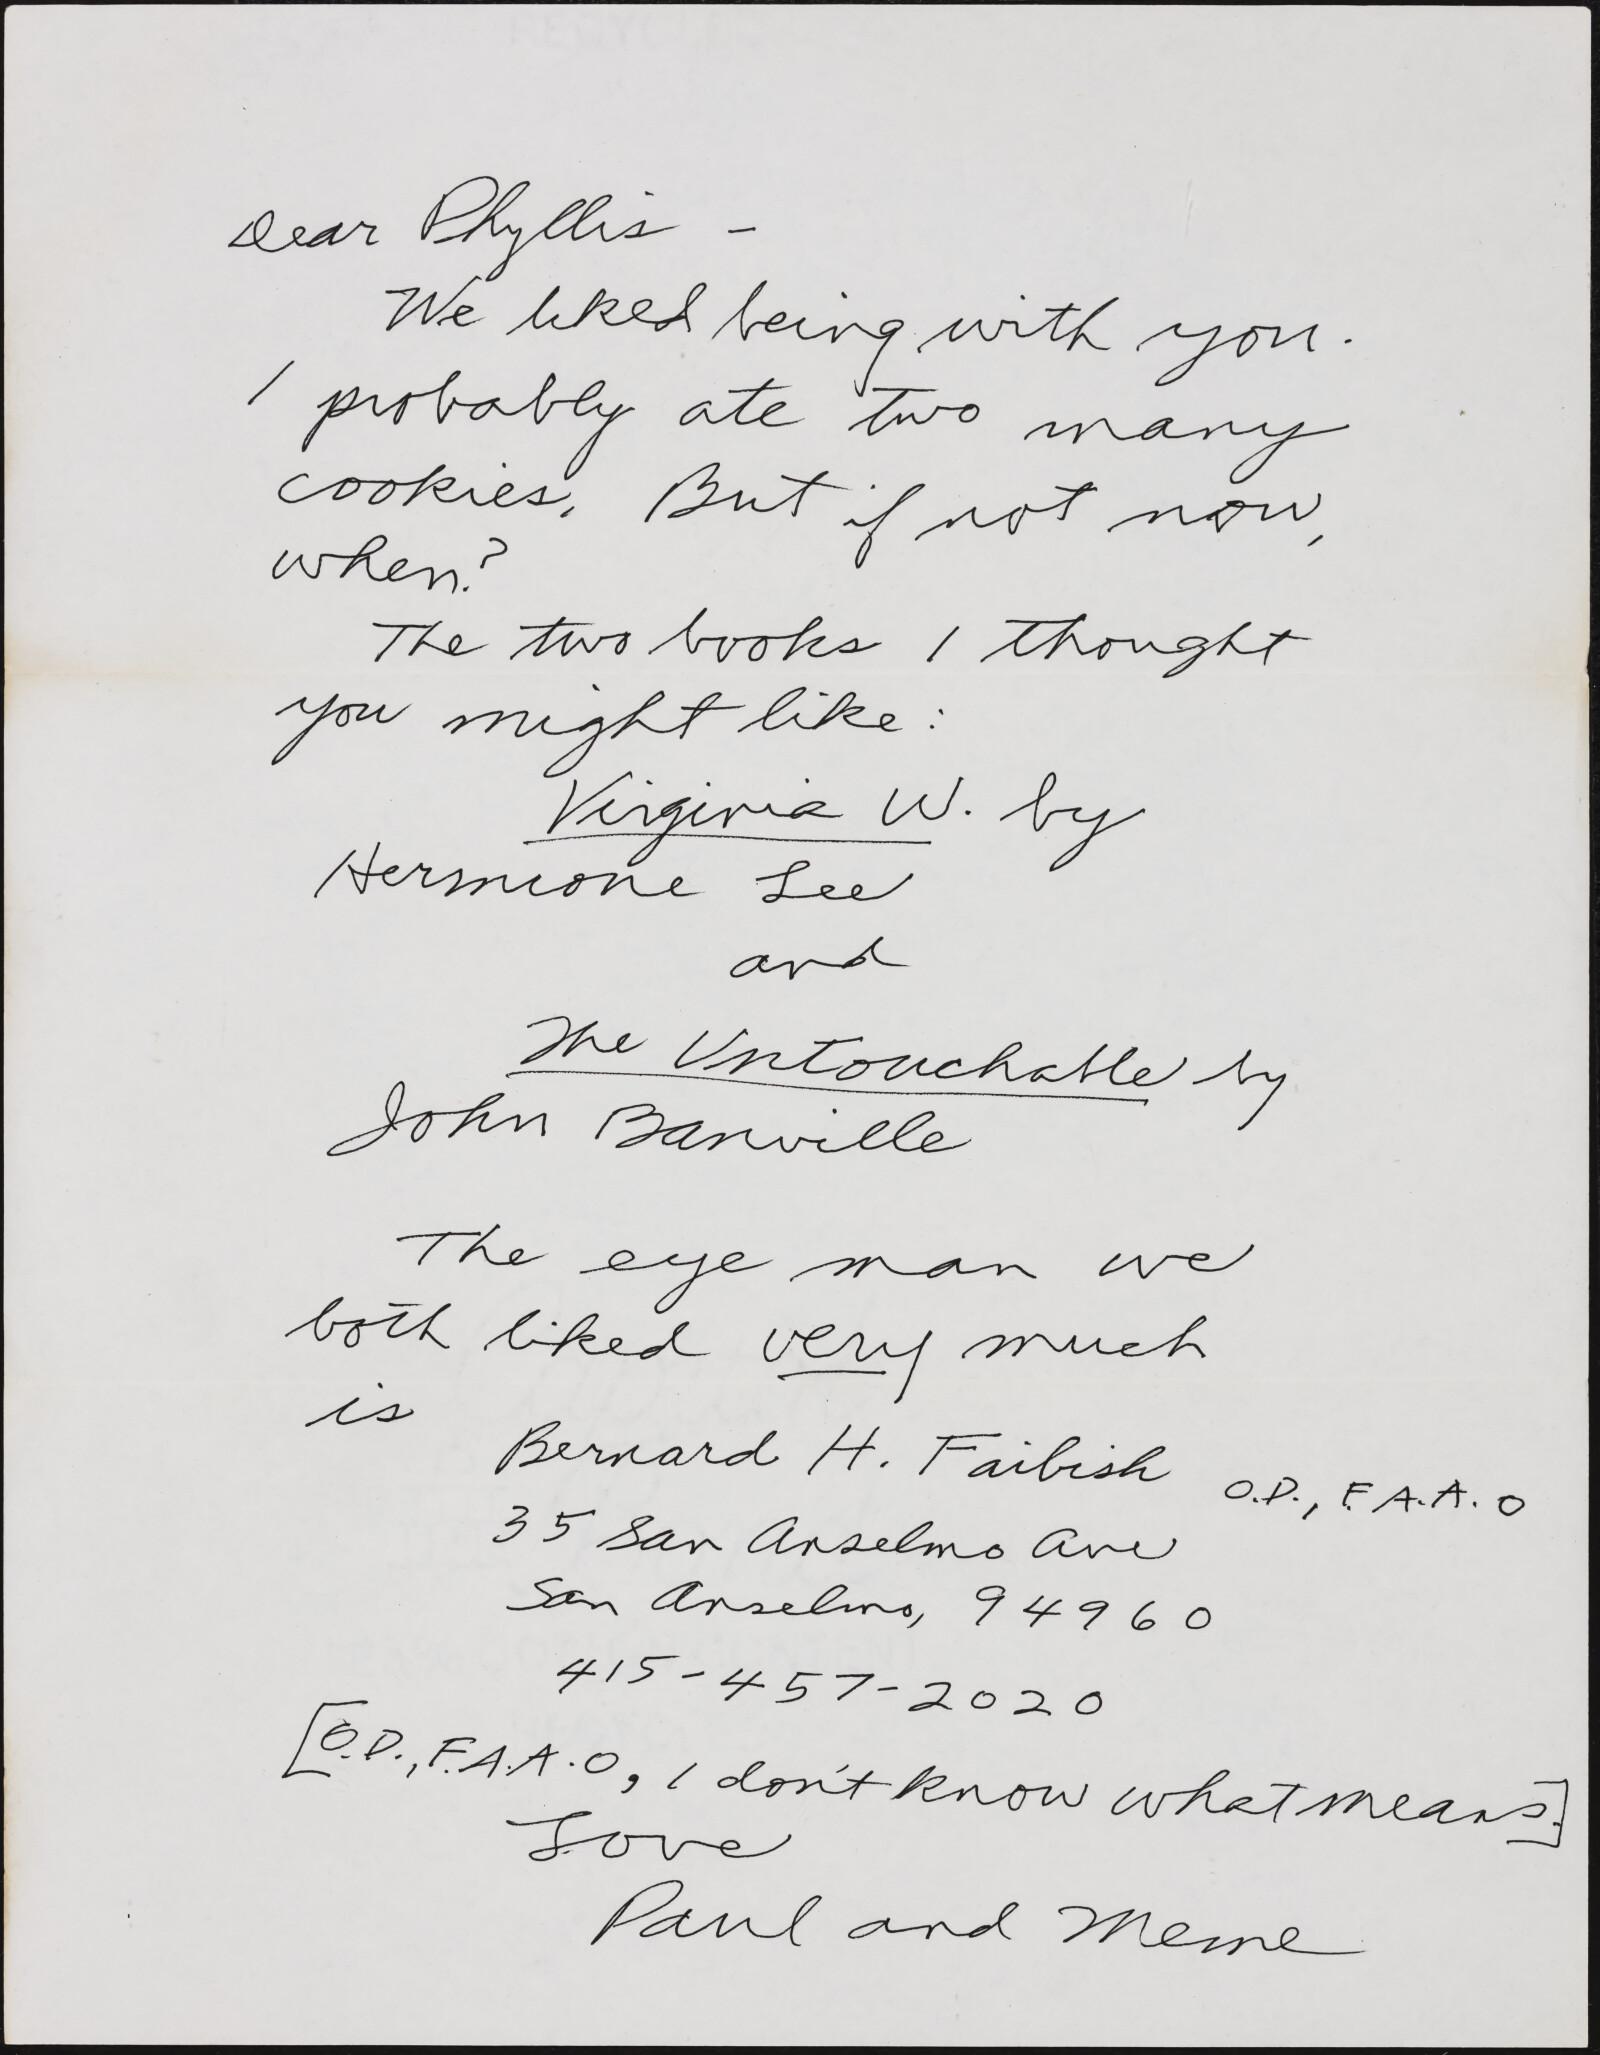 Dear Phyllis -
We liked being with you.
I probably ate two many
cookies. But if not now,
when?
The two books I thought
you might like:
Virginia W. by
Hermione Lee
and
The Untouchable by
John Banville
The eye man we
both liked very much
is
Bernard H. Faibish O.D., F.A.A.O
35 San Anselmo Ave
San Anselmo, 94960
415-457-2020
[O.D., F.A.A.O, I don't know what means.]
Love
Paul and Meme